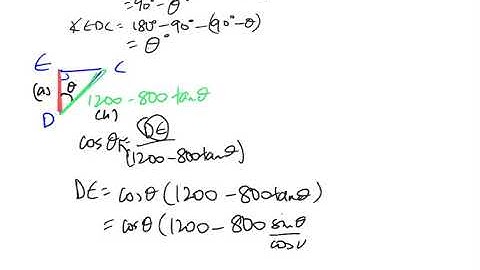 =90°-θ°
∠EDC = 180°-90°-(90°-θ)
= θ°
E C
θ
1200-800tanθ
D (h)
cosθ = DE/(1200-800tanθ)
DE = cosθ(1200-800tanθ)
= cosθ(1200-800 sinθ/cos